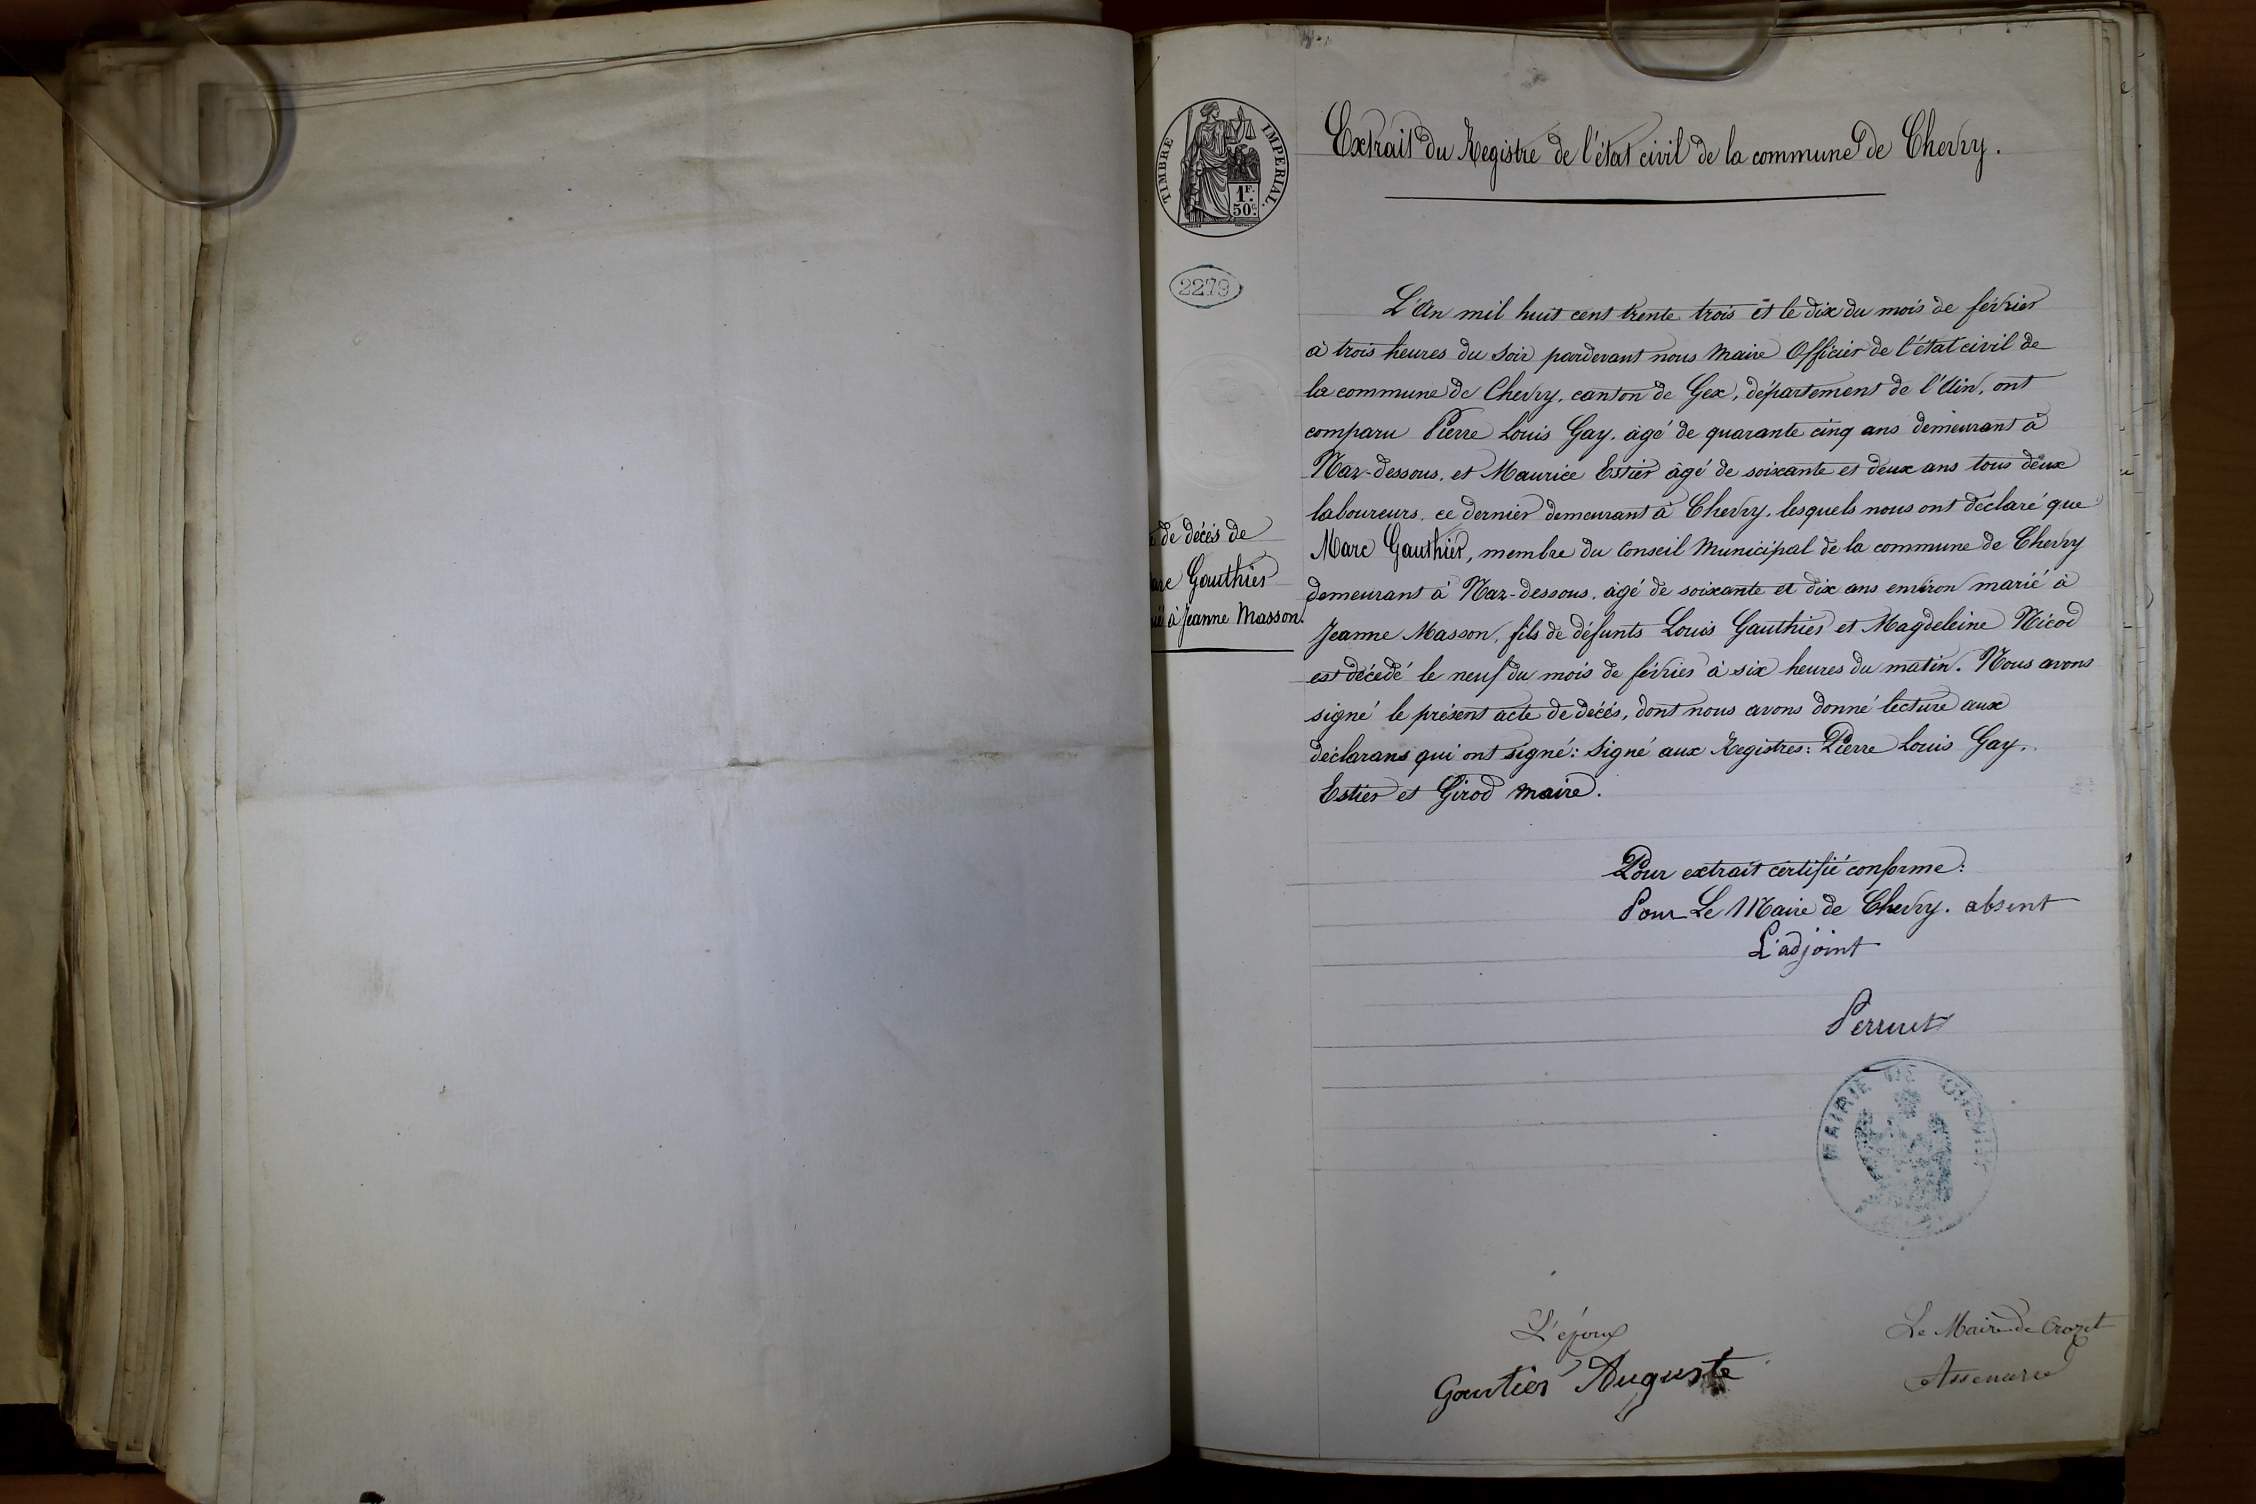 TIMBRE IMPERIAL.
1F.
50c.
2279
Extrait du Registre de l'état civil de la commune de Chevry.
de décès de
arc Gauthier
à Jeanne Masson.
L'An mil huit cent trente trois et le dix du mois de février
à trois heures du soir pardevant nous Maire Officier de l'état civil de
la commune de Chevry, canton de Gex, département de l'Ain, ont
comparu Pierre Louis Gay, âgé de quarante cinq ans demeurant à
Naz-dessous, et Maurice Estier âgé de soixante et deux ans tous deux
laboureurs, ce dernier demeurant à Chevry, lesquels nous ont déclaré que
Marc Gauthier, membre du Conseil Municipal de la commune de Chevry
demeurant à Naz-dessous, âgé de soixante et dix ans environ marié à
Jeanne Masson, fils de défunts Louis Gauthier et Magdeleine Nicod
est décédé le neuf du mois de février à six heures du matin. Nous avons
signé le présent acte de décès, dont nous avons donné lecture aux
déclarans qui ont signé: Signé aux Registres: Pierre Louis Gay.
Estier et Girod Maire.
Pour extrait certifié conforme:
Pour Le Maire de Chevry. absent
L'adjoint
MAIRIE DE CHEVRY
L'époux
Gautier Auguste
Le Maire de Crozet